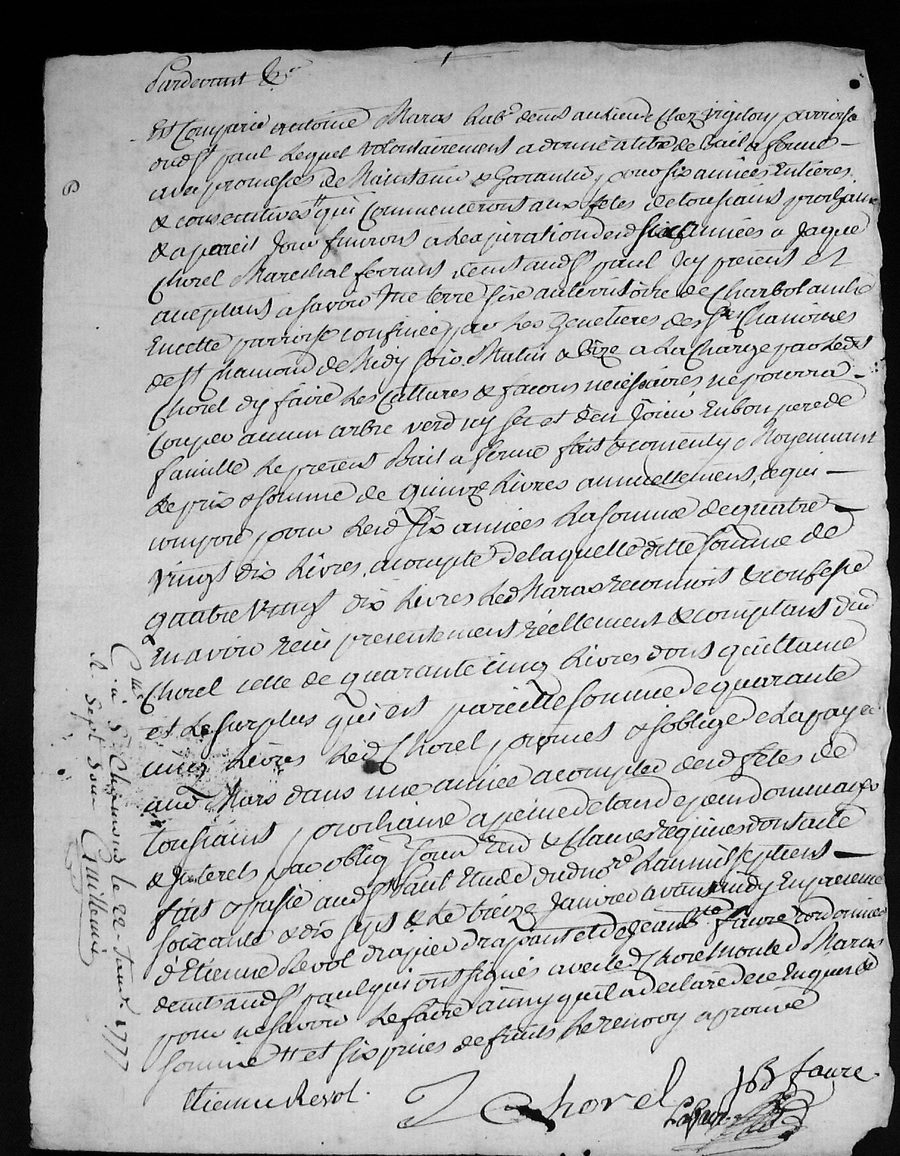 Pardevant &c
Est Comparu antoine Maras hab.t demt au lieu de chez Vigilon parroisse
dud st paul Lequel Volontairement a donné a titre de Bail a ferme
avec promesses de Maintenir & Garantir, pour six années Entieres
& consecutives # qui Commenceront aux fêtes de toussaints prochaine
& a pareil Jour finiront a L'expiration desd six années a Jaque
Chorel Marechal ferrant demt aud st paul Icy present et
aceptant a savoir Une terre size au territoire de Charbolanche
En cette parroisse confinée par Les Genetieres des srs Chanoines
de st Chamond de Midy soir Matin & Bize a La Charge par Ledt
Chorel dy faire Les Cultures & facons necessaires ne pourra
Couper aucun arbre verd ny sec et d'en Joüir En bon pere de
famille Le present Bail a ferme fait & consenty Moyennant
Le prix & somme de quinze Livres annuellement, ce qui
compose pour Lesd six années La somme de quatre
Vingt dix Livres, a compte de laquelle ditte somme de
quatre Vingt dix Livres Led Maras reconnoit & confesse
En avoir reçu presentement réellement & comptant dud
Chorel celle de quarante cinq Livres dont quittance
et Le surplus qui est pareille somme de quarante
cinq Livres Led Chorel promet & s'oblige de La payer
aud Maras dans une année a compter desd fêtes de
toussaints prochaine a peine de tous depens dommages
& Interets par oblig soum rend & Clauses requises dont acte
fait & passé aud st Paul Etude du d no.re L'an mil sept cent
soixante & dix sept & Le treize Janvier avant midy En presence
d'Etienne Revol drapier drapant et de Jean Bte faure cordonnier
demt aud st paul qui ont signés avec led Chorel non led Maras
pour ne savoir Le faire ainsy qu'il a declaré de ce Enquis &
sommé # et six prises de fruits Le renvoy aprouvé
Etienne Revol. Chorel JB faure
C.llé à St Chamond le 22 Janv. 1777
R. Sept sous Guillemin